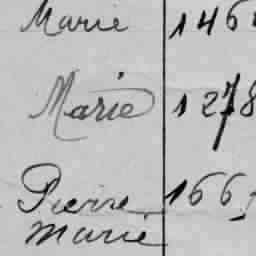 Marie 146
Marie 1278
Pierre 166
Marie